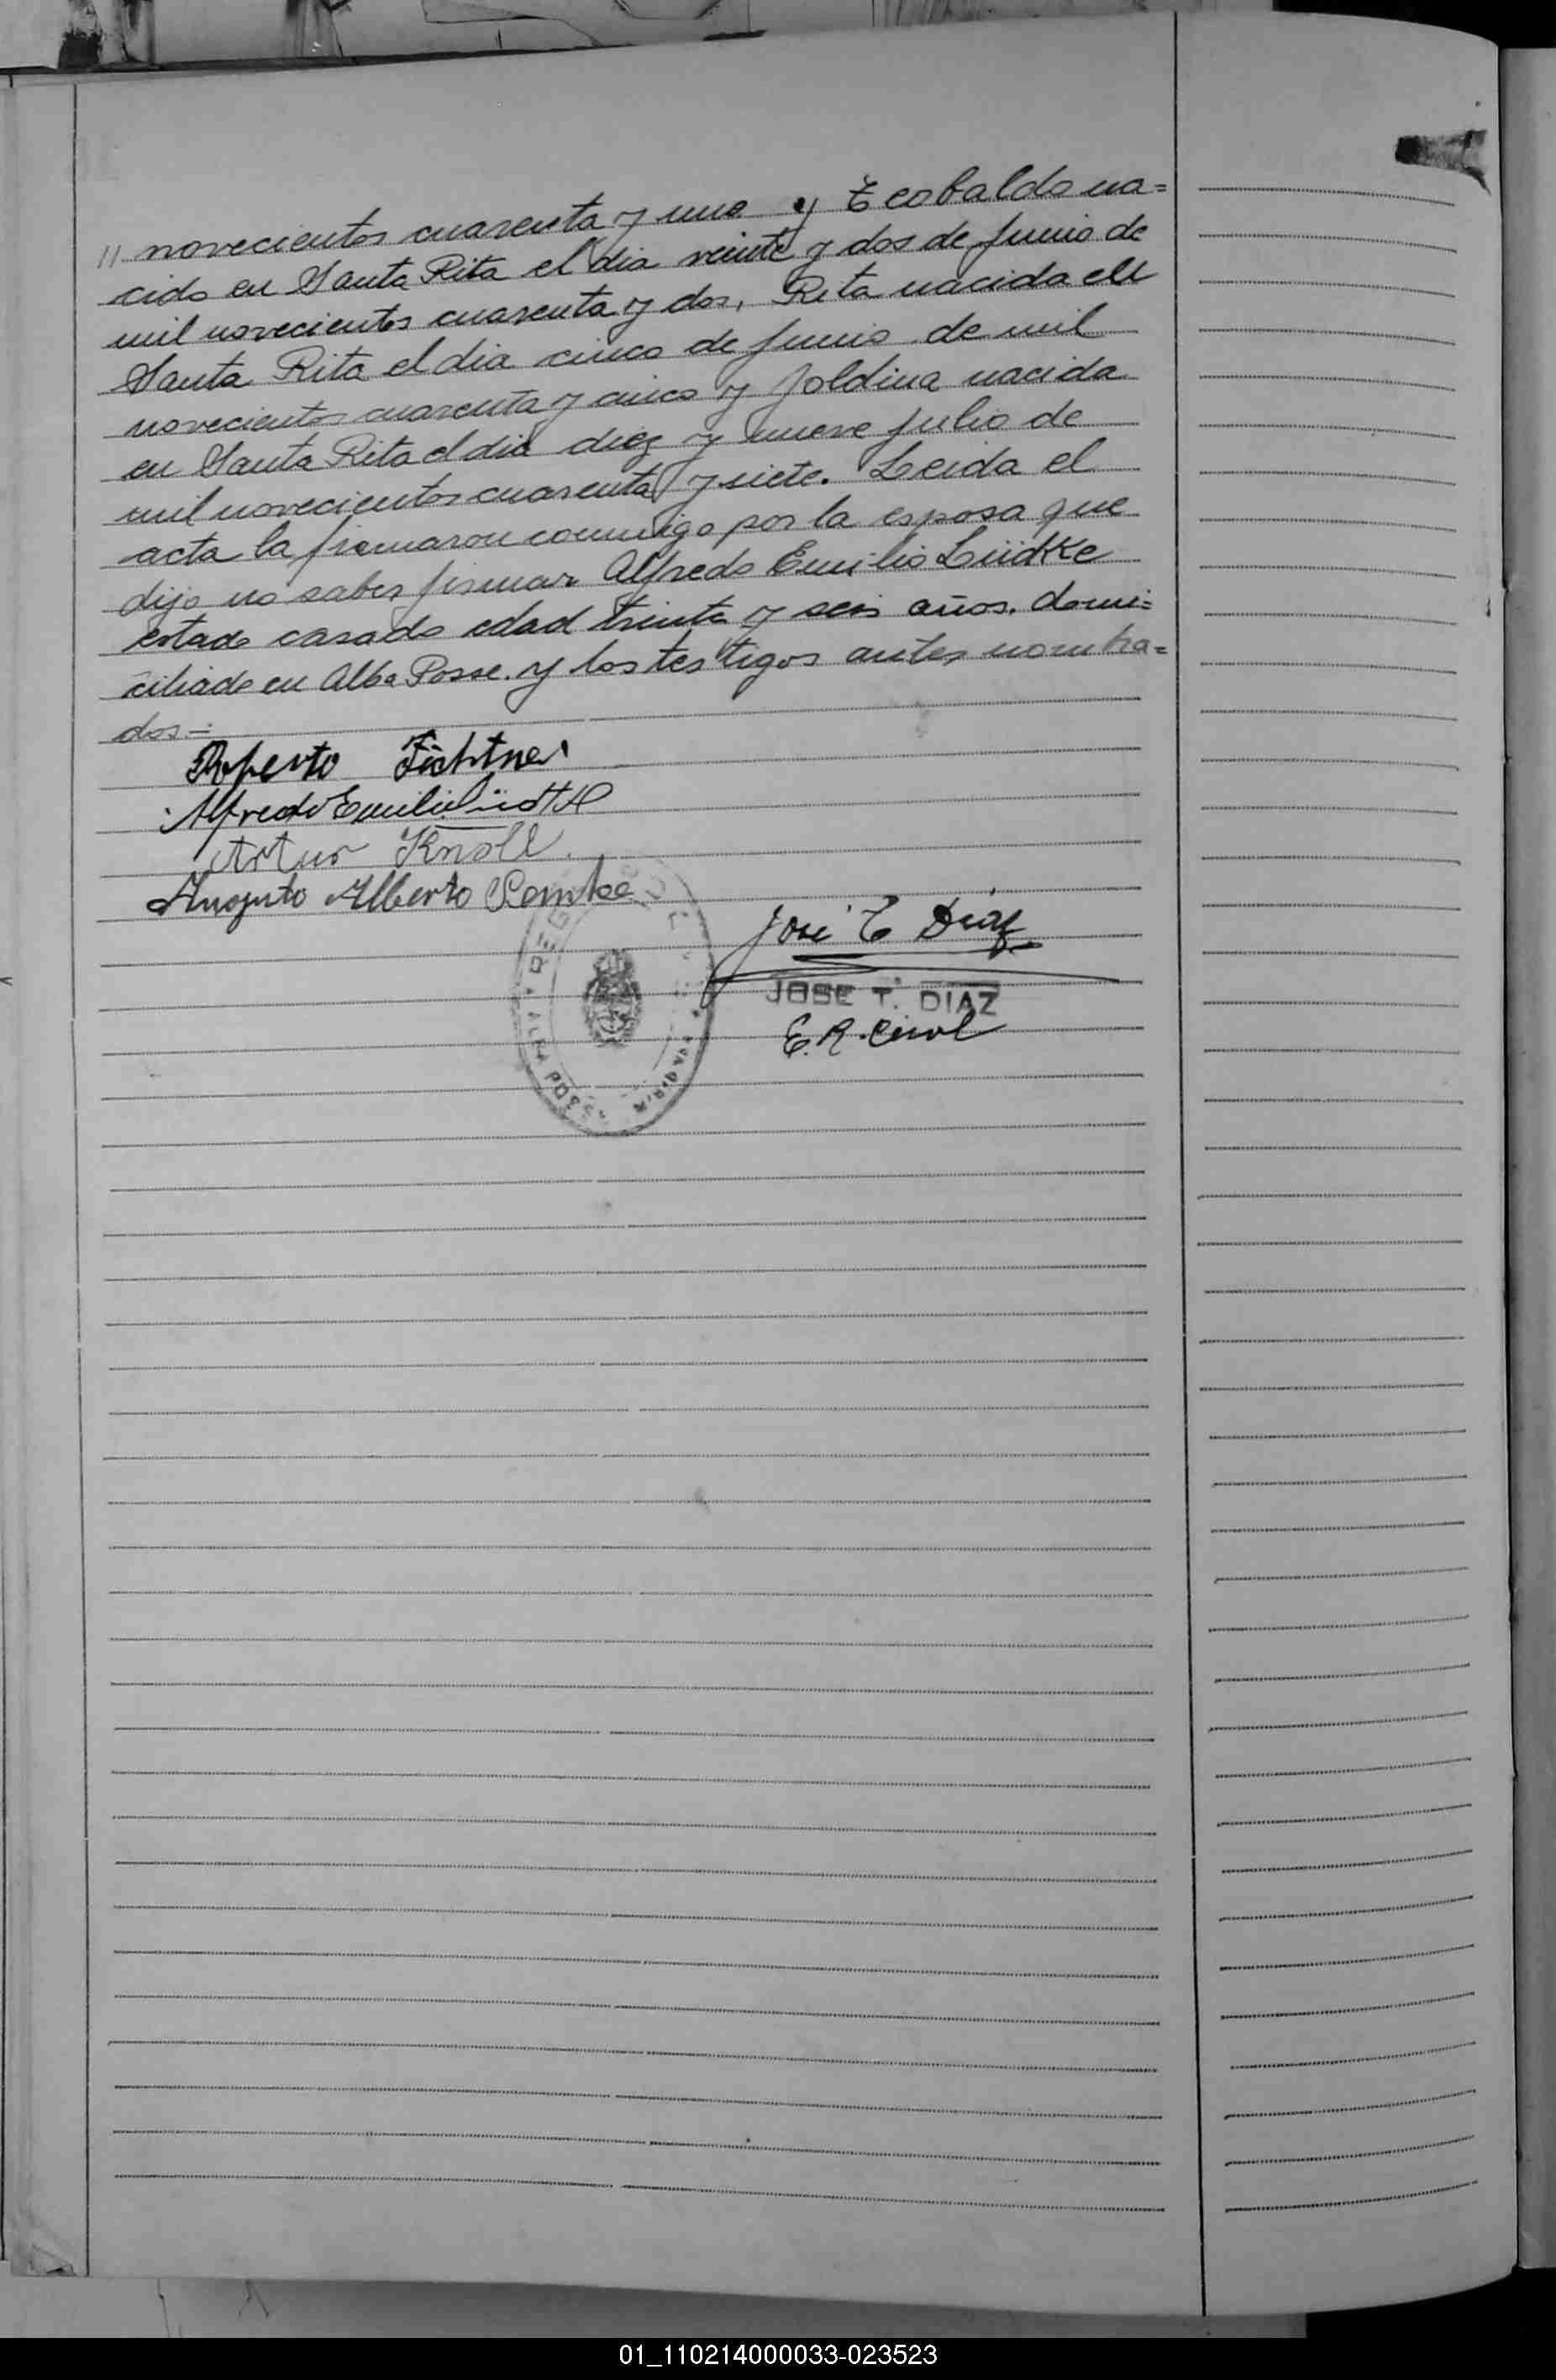 // novecientos cuarenta y uno y Teobaldo na=
cido en Santa Rita el dia veinte y dos de Junio de
mil novecientos cuarenta y dos, Rita nacida en
Santa Rita el dia cinco de Junio de mil
novecientos cuarenta y cinco y Joldina nacida
en Santa Rita el dia diez y nueve julio de
mil novecientos cuarenta y siete. Leida el
acta la firmaron conmigo por la esposa que
dijo no saber firmar Alfredo Emilio Lüdkke
estado casado edad treinta y seis años. domi=
ciliado en Alba Posse. y los testigos antes nombra=
dos.=
Roberto Fichtner
Alfredo Emilio
Artur Knoll.
Augusto Alberto
José T Diaz
JOSE T. DIAZ
E. R. Civil
ALBA POSSE
01_110214000033-023523